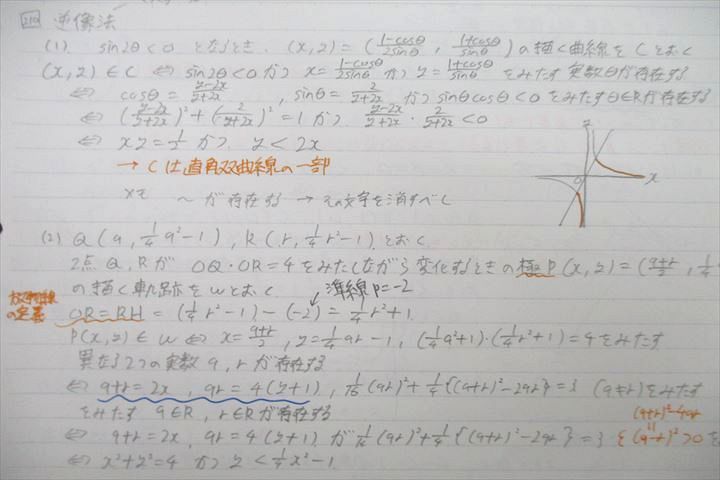 逆像法
(1) sin2θ<0 となるとき、(x,y)=(1-cosθ/2sinθ , 1+cosθ/sinθ)の描く曲線をCとおく
(x,y)∈C ⇔ sin2θ<0 かつ x=1-cosθ/2sinθ かつ y=1+cosθ/sinθ をみたす実数θが存在する
⇔ cosθ=y-2x/y+2x , sinθ=2/y+2x かつ sinθcosθ<0 をみたすθ∈Rが存在する
⇔ (y-2x/y+2x)²+(2/y+2x)²=1 かつ y-2x/y+2x・2/y+2x<0
⇔ xy=1/2 かつ y<2x
→ Cは直角双曲線の一部
y
O
x
〜が存在する → その文字を消すべし
(2) Q(q, 1/4q²-1), R(r, 1/4r²-1)とおく
2点Q,Rが OQ・OR=4をみたしながら変化するときの極P(x,y)=(q+r/2, 1/4
の描く軌跡をWとおく
準線 y=-2
放物線の定義
OR=RH=(1/4r²-1)-(-2)=1/4r²+1
P(x,y)∈W ⇔ x=q+r/2, y=1/4qr-1, (1/4q²+1)・(1/4r²+1)=4をみたす
異なる2つの実数q,rが存在する
⇔ q+r=2x, qr=4(y+1), 1/16(qr)²+1/4{(q+r)²-2qr}=3 (q≠r)をみたす
をみたす q∈R, r∈Rが存在する
(q+r)²-4qr
⇔ q+r=2x, qr=4(y+1)が1/16(qr)²+1/4{(q+r)²-2qr}=3 & (q-r)²>0を
⇔ x²+y²=4 かつ y<1/4x²-1